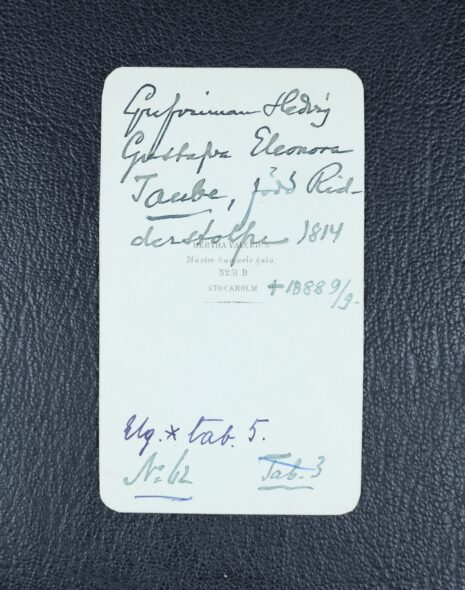 Grefvinnan Hedvig
Gustafva Eleonora
Taube, född Rid-
derstolpe 1814
BERTHA VALERIUS
Mäster Samuels gata
No 51 B
STOCKHOLM. + 1888 9/9.
Elg. * tab. 5.
No: 62 Tab. 3